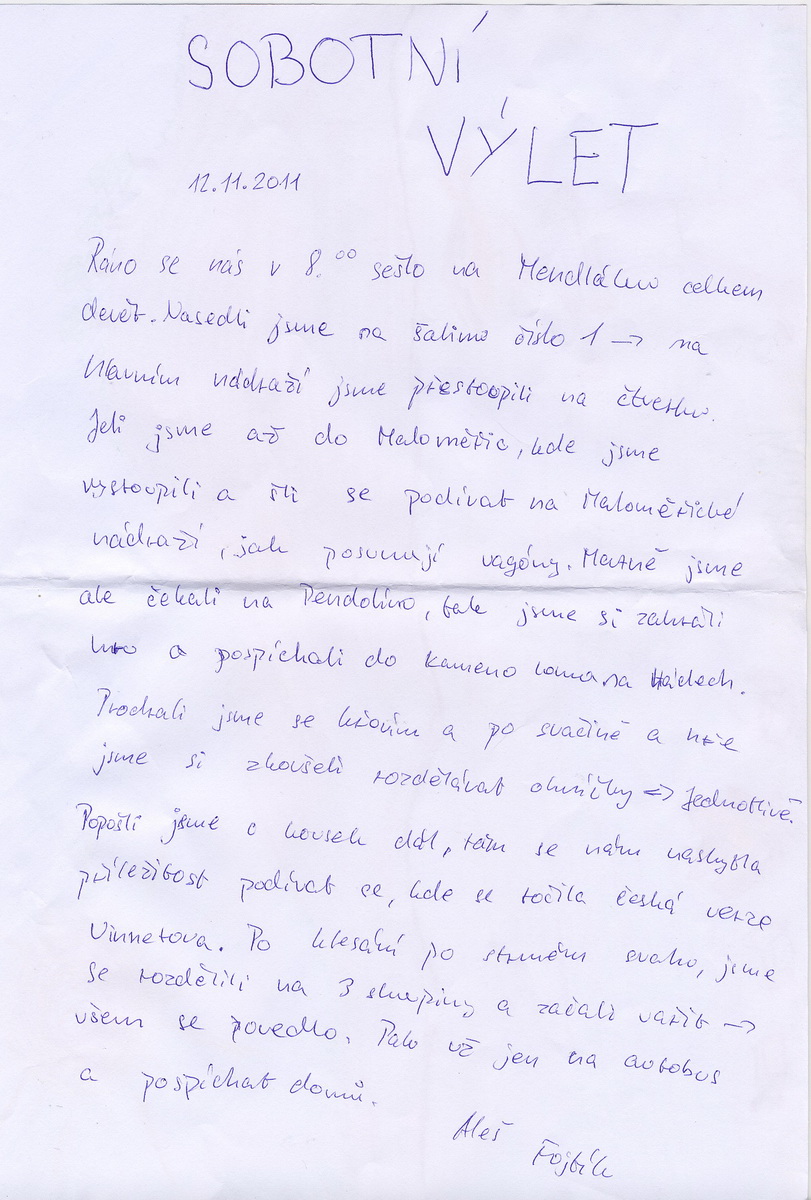 SOBOTNÍ
VÝLET
12.11.2011
Ráno se nás v 8.00 sešlo na Mendláku celkem
devět. Nasedli jsme na šalinu číslo 1 → na
hlavním nádraží jsme přestoupili na čtverku.
Jeli jsme až do Maloměřic, kde jsme
vystoupili a šli se podívat na Maloměřické
nádraží, jak posunují vagóny. Marně jsme
ale čekali na Pendolino, tak jsme si zahráli
hru a pospíchali do kameno lomu na Hádech.
Prodrali jsme se křovím a po svačině a hře
jsme si zkoušeli rozdělávat ohníčky => Jednotlivě.
Popošli jsme o kousek dál, tam se nám naskytla
příležitost podívat se, kde se točila česká verze
Vinnetova. Po klesání po strmém svahu, jsme
se rozdělili na 3 skupiny a začali vařit →
všem se povedlo. Pak už jen na autobus
a pospíchat domů.
Aleš
Fojtík